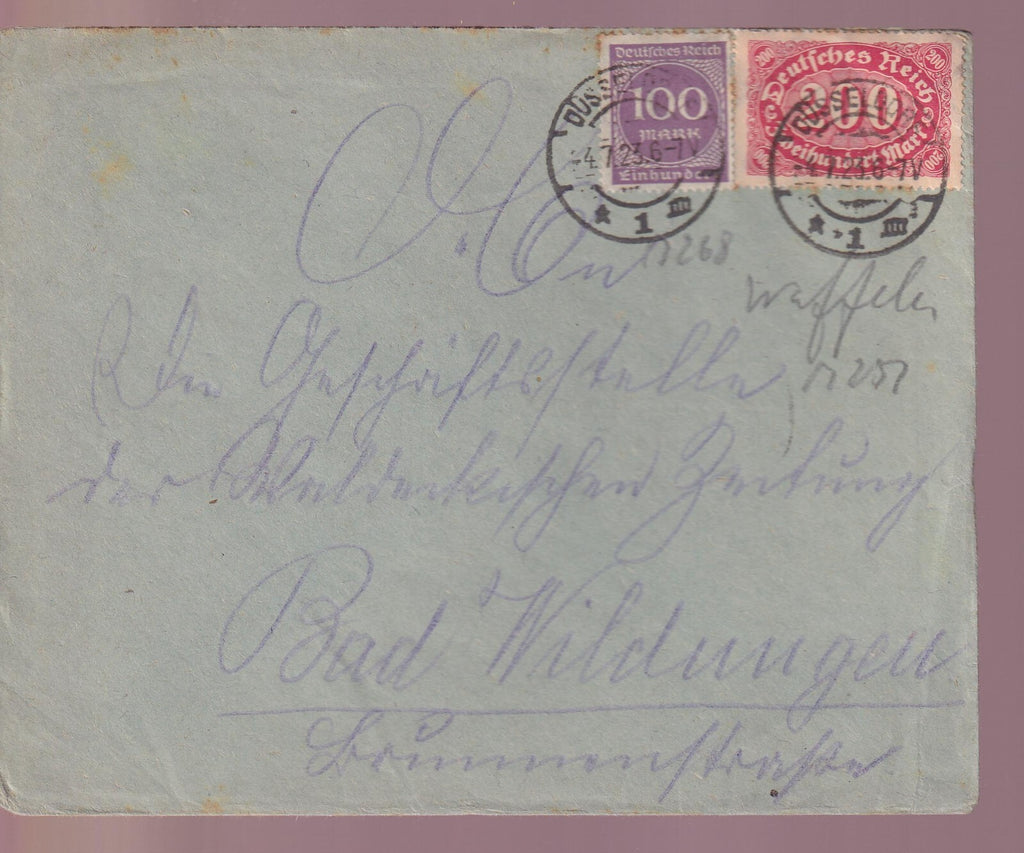 Deutsches Reich
100
MARK
Einhundert
Deutsches Reich
200
Zweihundert Mark
200
200
200
DÜSSELDORF
-4.7.23.6-7V
* 1 m
DÜSSELDORF
-4.7.23.6-7V
* 1 m
An
268
die Geschäftsstelle
251
der Waldeckischen Zeitung
Bad Wildungen
Brunnenstraße